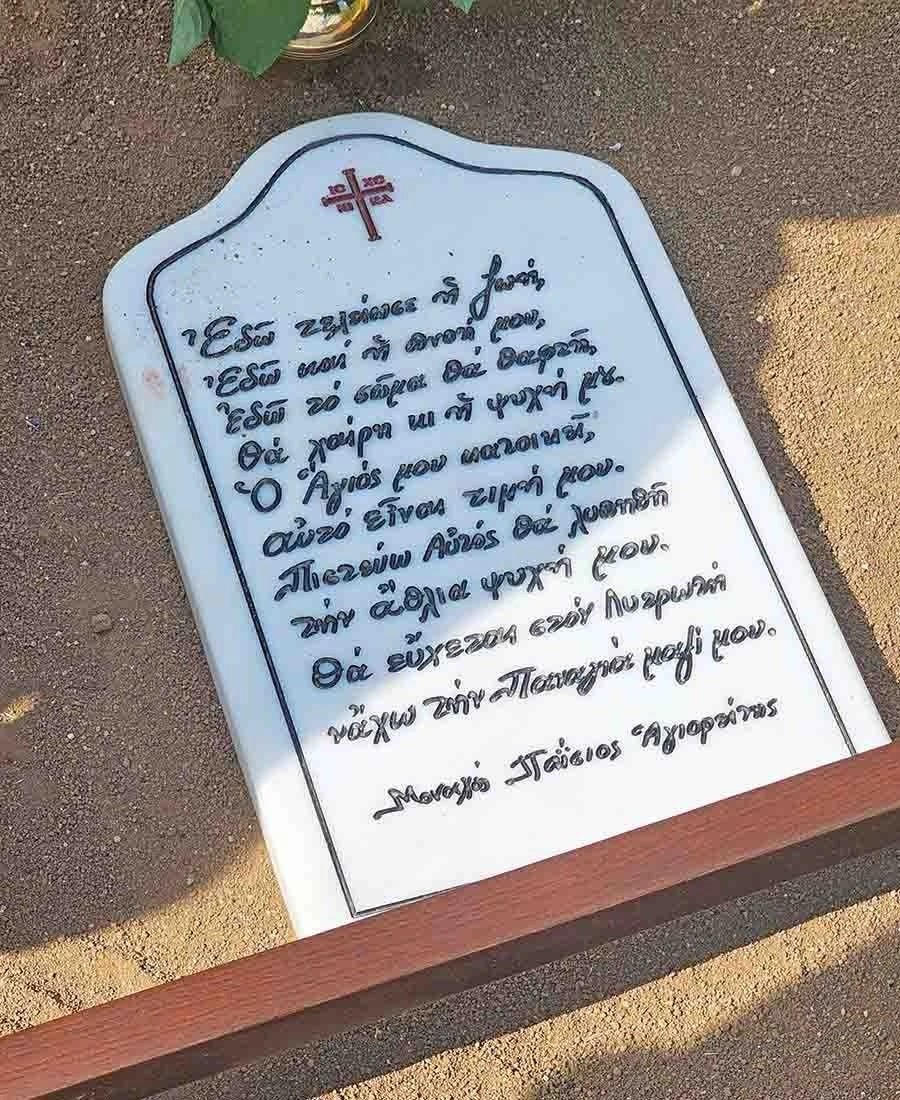 ΙC ΧC
ΝΙ ΚΑ
Ἐδῶ τελείωσε ἡ ζωή,
Ἐδῶ καί ἡ πνοή μου,
Ἐδῶ τό σῶμα θά θαφτῆ,
θά χαίρη κι ἡ ψυχή μου.
Ὁ Ἅγιός μου κατοικεῖ,
αὐτό εἶναι τιμή μου.
Πιστεύω Αὐτός θά λυπηθῆ
τήν ἄθλια ψυχή μου.
Θά εὔχεται στόν Λυτρωτή
νἄχω τήν Παναγιά μαζί μου.
Μοναχός Παΐσιος Ἁγιορείτης